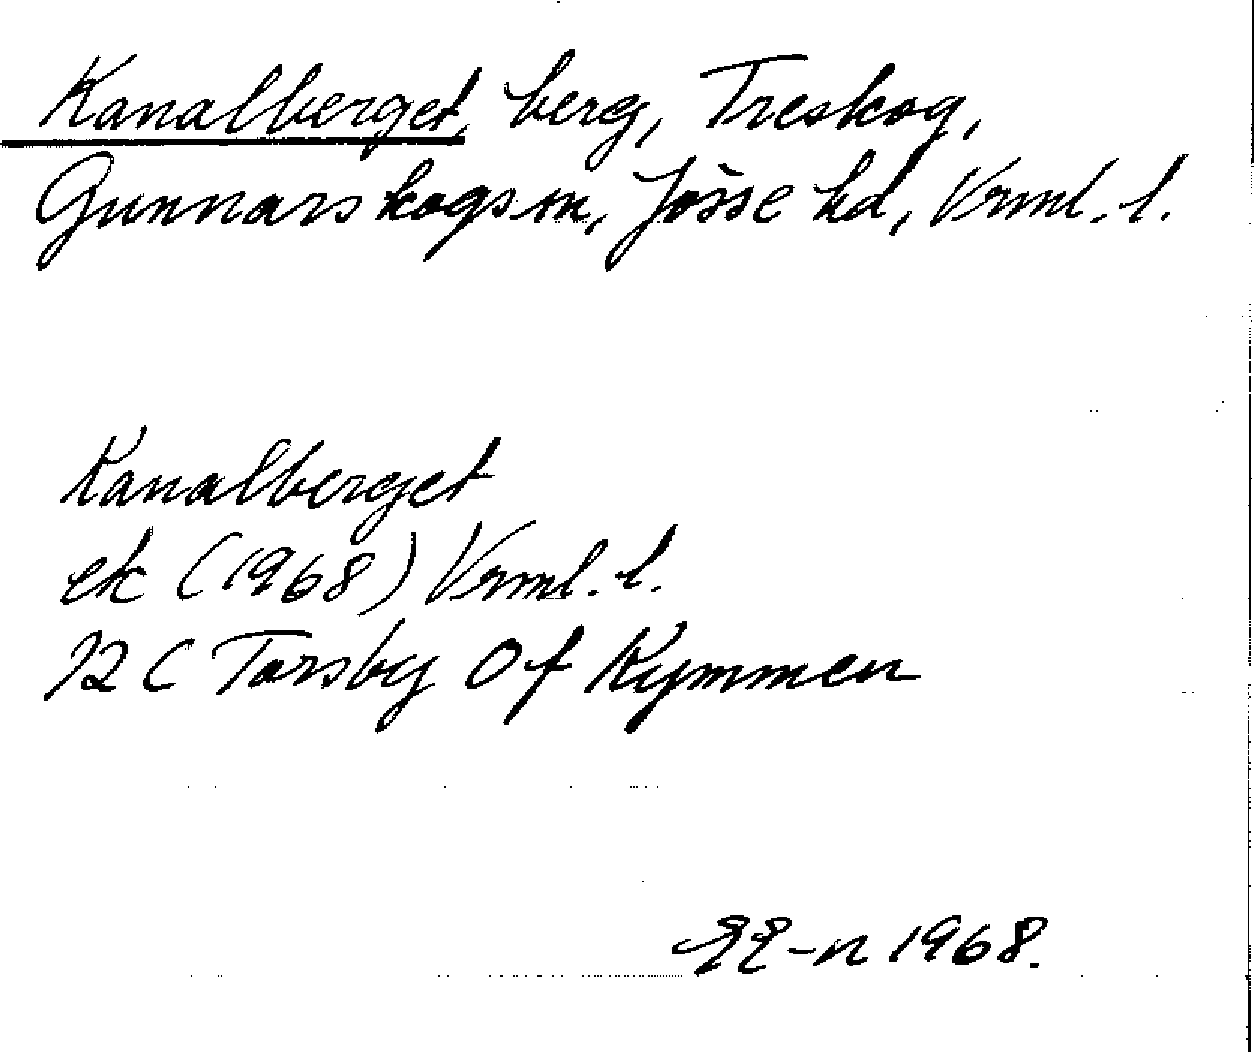 Kanalberget, berg, Treskog,
Gunnarskogs sn, Jösse hd, Vrml. l.
Kanalberget
ek (1968) Vrml. l.
12 C Torsby 0f Kymmen
1968.